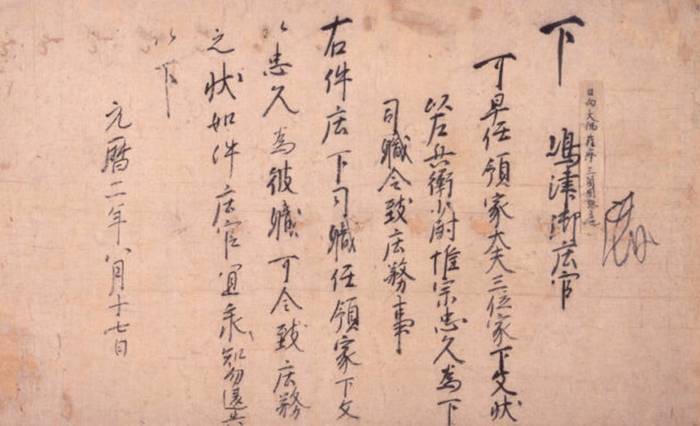 下 嶋津御庄官
可早任領家大夫三位家下文状
以左兵衛少尉惟宗忠久為下
司職令致庄務事
右件庄下司職任領家下文
以忠久為彼職可令致庄務
之状如件庄官宜承知勿違
以下
元暦二年八月十七日